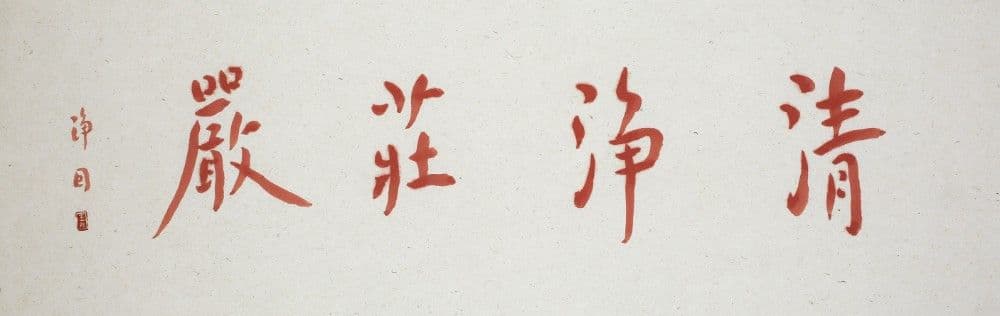 清淨莊嚴
淨